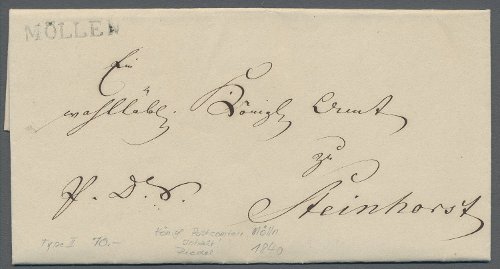 MÖLLEN
Ein
wohllöbl. Königl. Amt
zu
P. D. S. Steinhorst
Type II 70.- Königl. Postcomtoir Mölln
1840